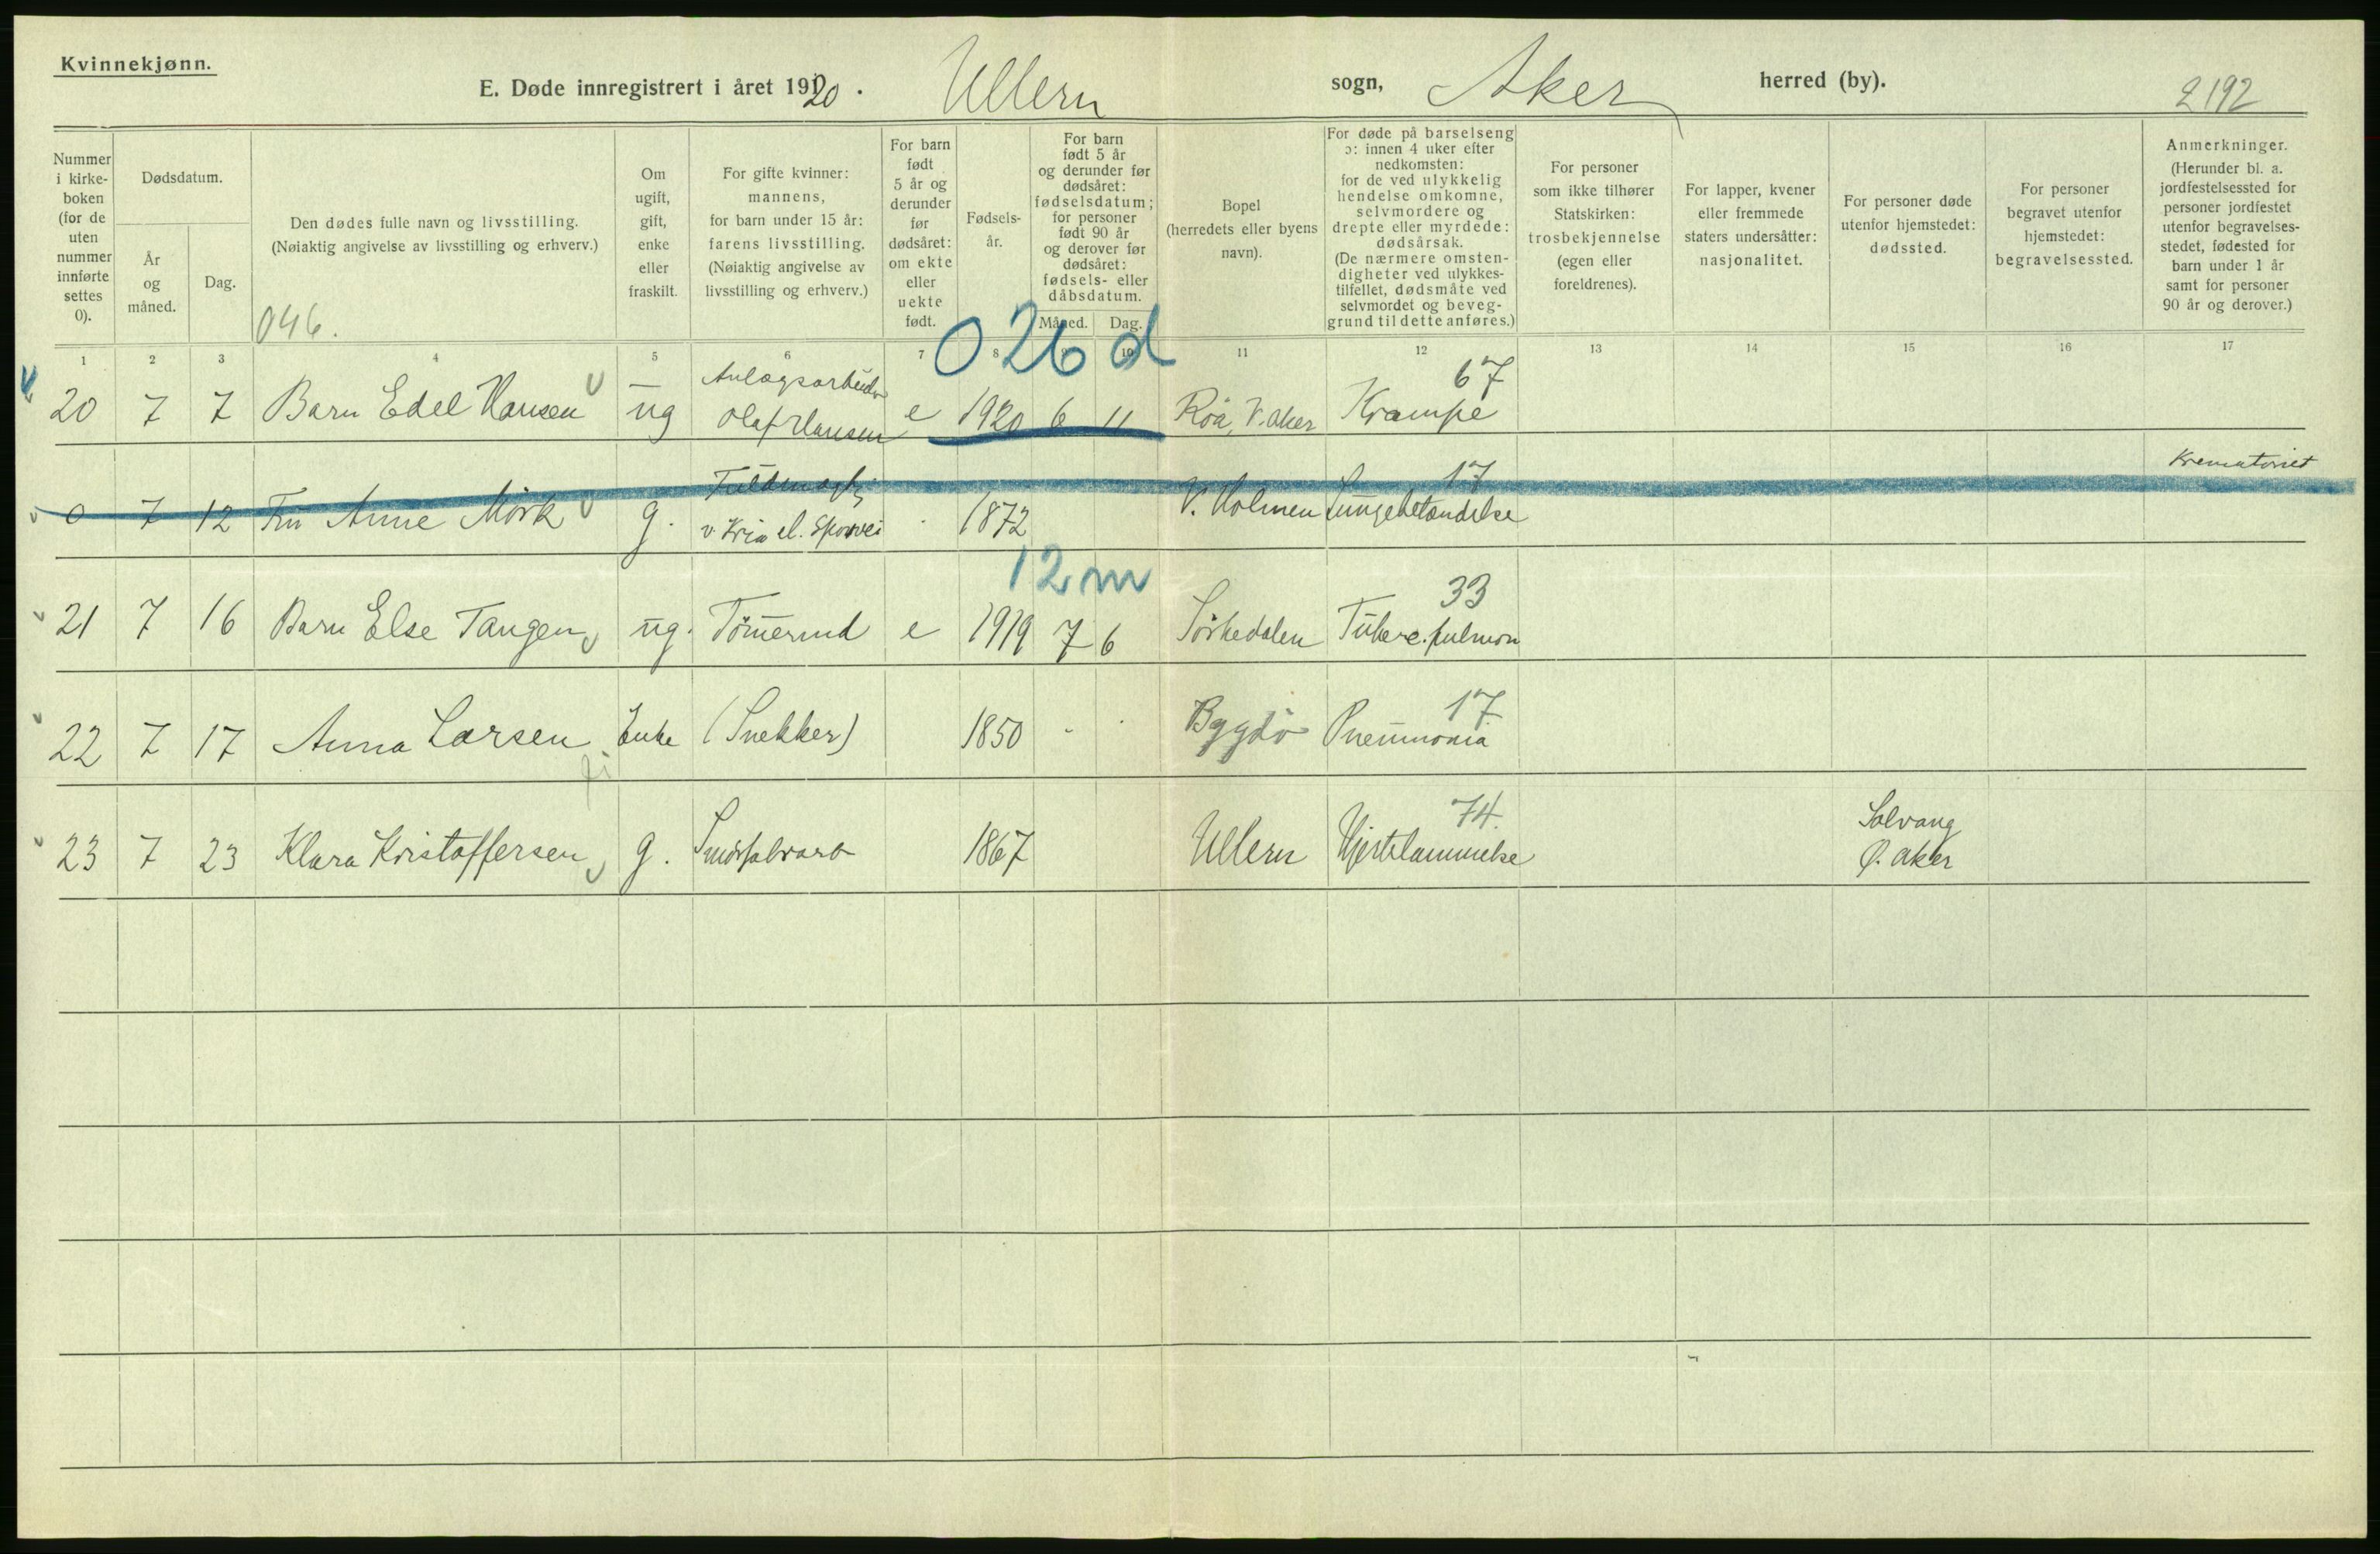 Kvinnekjønn.
E. Døde innregistrert i året 1920. Ullern sogn, Aker herred (by). 2192
Nummer i kirkeboken (for de uten nummer innførte settes 0).
Dødsdatum.
År og måned.
Dag.
Den dødes fulle navn og livsstilling.
(Nøiaktig angivelse av livsstilling og erhverv.)
046.
Om ugift, gift, enke eller fraskilt.
For gifte kvinner: mannens, for barn under 15 år: farens livsstilling.
(Nøiaktig angivelse av livsstilling og erhverv.)
For barn født 5 år og derunder før dødsåret: om ekte eller uekte født.
Fødselsår.
For barn født 5 år og derunder før dødsåret: fødselsdatum; for personer født 90 år og derover før dødsåret: fødsels- eller dåbsdatum.
Måned. Dag.
Bopel (herredets eller byens navn).
For døde på barselseng ɔ: innen 4 uker efter nedkomsten: for de ved ulykkelig hendelse omkomne, selvmordere og drepte eller myrdede: dødsårsak.
(De nærmere omstendigheter ved ulykkestilfellet, dødsmåte ved selvmordet og beveggrund til dette anføres.)
For personer som ikke tilhører Statskirken: trosbekjennelse (egen eller foreldrenes).
For lapper, kvener eller fremmede staters undersåtter: nasjonalitet.
For personer døde utenfor hjemstedet: dødssted.
For personer begravet utenfor hjemstedet: begravelsessted.
Anmerkninger.
(Herunder bl. a. jordfestelsessted for personer jordfestet utenfor begravelsesstedet, fødested for barn under 1 år samt for personer 90 år og derover.)
1 2 3 4 5 6 7 8 9 10 11 12 13 14 15 16 17
026 d
20 7 7 Barn Edel Hansen — ug Anlægsarbeider Olaf Hansen e 1920 6 11 Röa, V. Aker Krampe 67
0 7 12 Fru Anne Mörk g. Fuldmægtig v Kria el. Sporvei 1872 V. Holmen Lungebetændelse 17 Krematoriet
12 m
21 7 16 Barn Else Tangen ug. Tömmermd e 1919 7 6 Sörkedalen Tuberc. pulmon 33
22 7 17 Anna Larsen Enke (Snekker) 1850 - Bygdö Pneumonia 17
23 7 23 Klara Kristoffersen g. 1867 Ullern Hjertelammelse 74. Solvang Ø. Aker